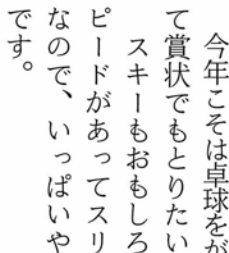 今年こそは卓球をが
て賞状でもとりたい
スキーもおもしろ
ピードがあってスリ
なので、いっぱいや
です。